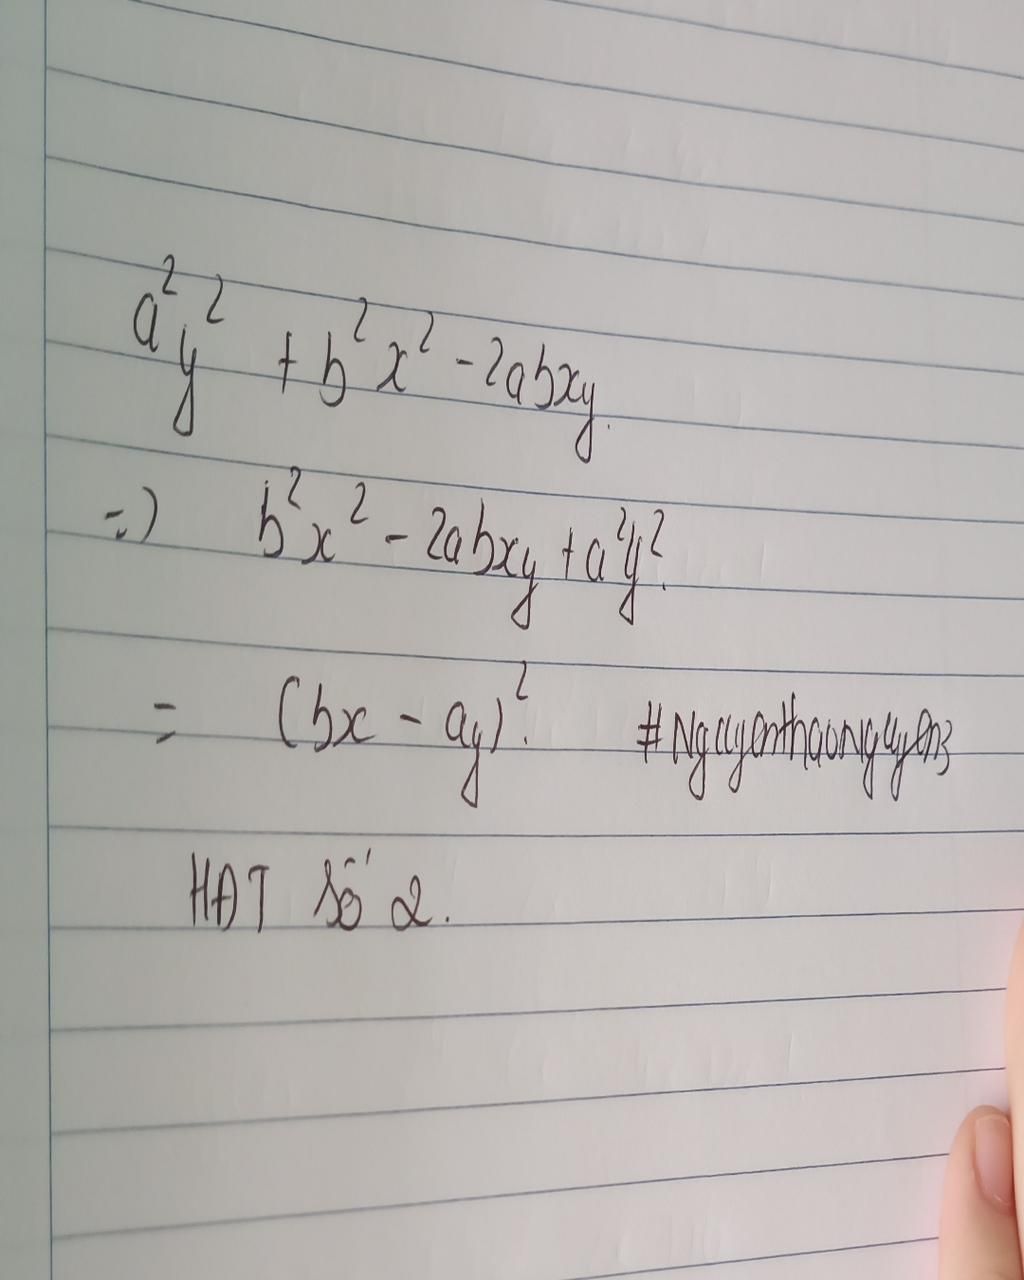 a²y² + b²x² - 2abxy.
=) b²x² - 2abxy + a²y².
= (bx - ay)². #Nguyenthaonguyen3
HĐT số 2.